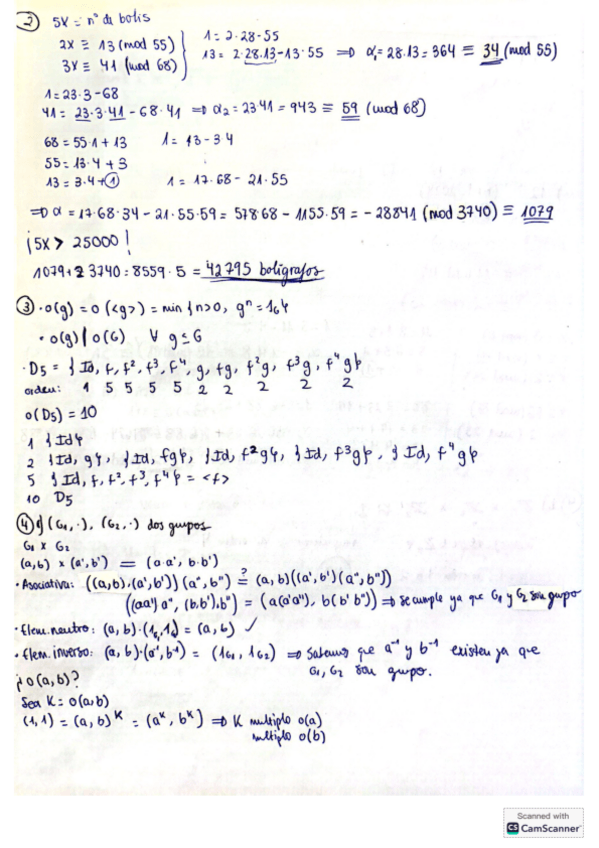 ② 5X = nº de bolis
2X ≡ 13 (mod 55)
3X ≡ 41 (mod 68)
1 = 2·28 - 55
13 = 2·28·13 - 13·55 ⇒ α₁ = 28·13 = 364 ≡ 34 (mod 55)
1 = 23·3 - 68
41 = 23·3·41 - 68·41 ⇒ α₂ = 23 41 = 943 ≡ 59 (mod 68)
68 = 55·1 + 13 1 = 13 - 3·4
55 = 13·4 + 3
13 = 3·4 + ① 1 = 17·68 - 21·55
⇒ α = 17·68·34 - 21·55·59 = 578·68 - 1155·59 = -28841 (mod 3740) ≡ 1079
¡5X > 25000!
1079 + 2 3740 = 8559·5 = 42795 bolígrafos
③ · o(g) = o(<g>) = min {n>0, gⁿ = 1G}
· o(g) | o(G) ∀ g ≤ G
· D5 = {Id, f, f², f³, f⁴, g, fg, f²g, f³g, f⁴g}
orden: 1 5 5 5 5 2 2 2 2 2
o(D5) = 10
1 {Id}
2 {Id, g}, {Id, fg}, {Id, f²g}, {Id, f³g}, {Id, f⁴g}
5 {Id, f, f², f³, f⁴} = <f>
10 D5
④ (G₁, ·), (G₂, ·) dos grupos
G₁ x G₂
(a,b) x (a',b') = (a·a', b·b')
· Asociativa: ((a,b)·(a',b'))(a'',b'') ≟ (a,b)((a',b')(a'',b''))
((aa')a'', (b·b')b'') = (a(a'a''), b(b'b'')) ⇒ se cumple ya que G₁ y G₂ son grupo
· Elem. neutro: (a,b)·(1G₁,1G₂) = (a,b) ✓
· Elem. inverso: (a,b)·(a⁻¹,b⁻¹) = (1G₁, 1G₂) ⇒ Sabemos que a⁻¹ y b⁻¹ existen ya que
G₁, G₂ son grupo.
¿O(a,b)?
Sea K = o(a,b)
(1,1) = (a,b)ᴷ = (aᴷ, bᴷ) ⇒ K multiplo o(a)
multiplo o(b)
Scanned with
CS CamScanner